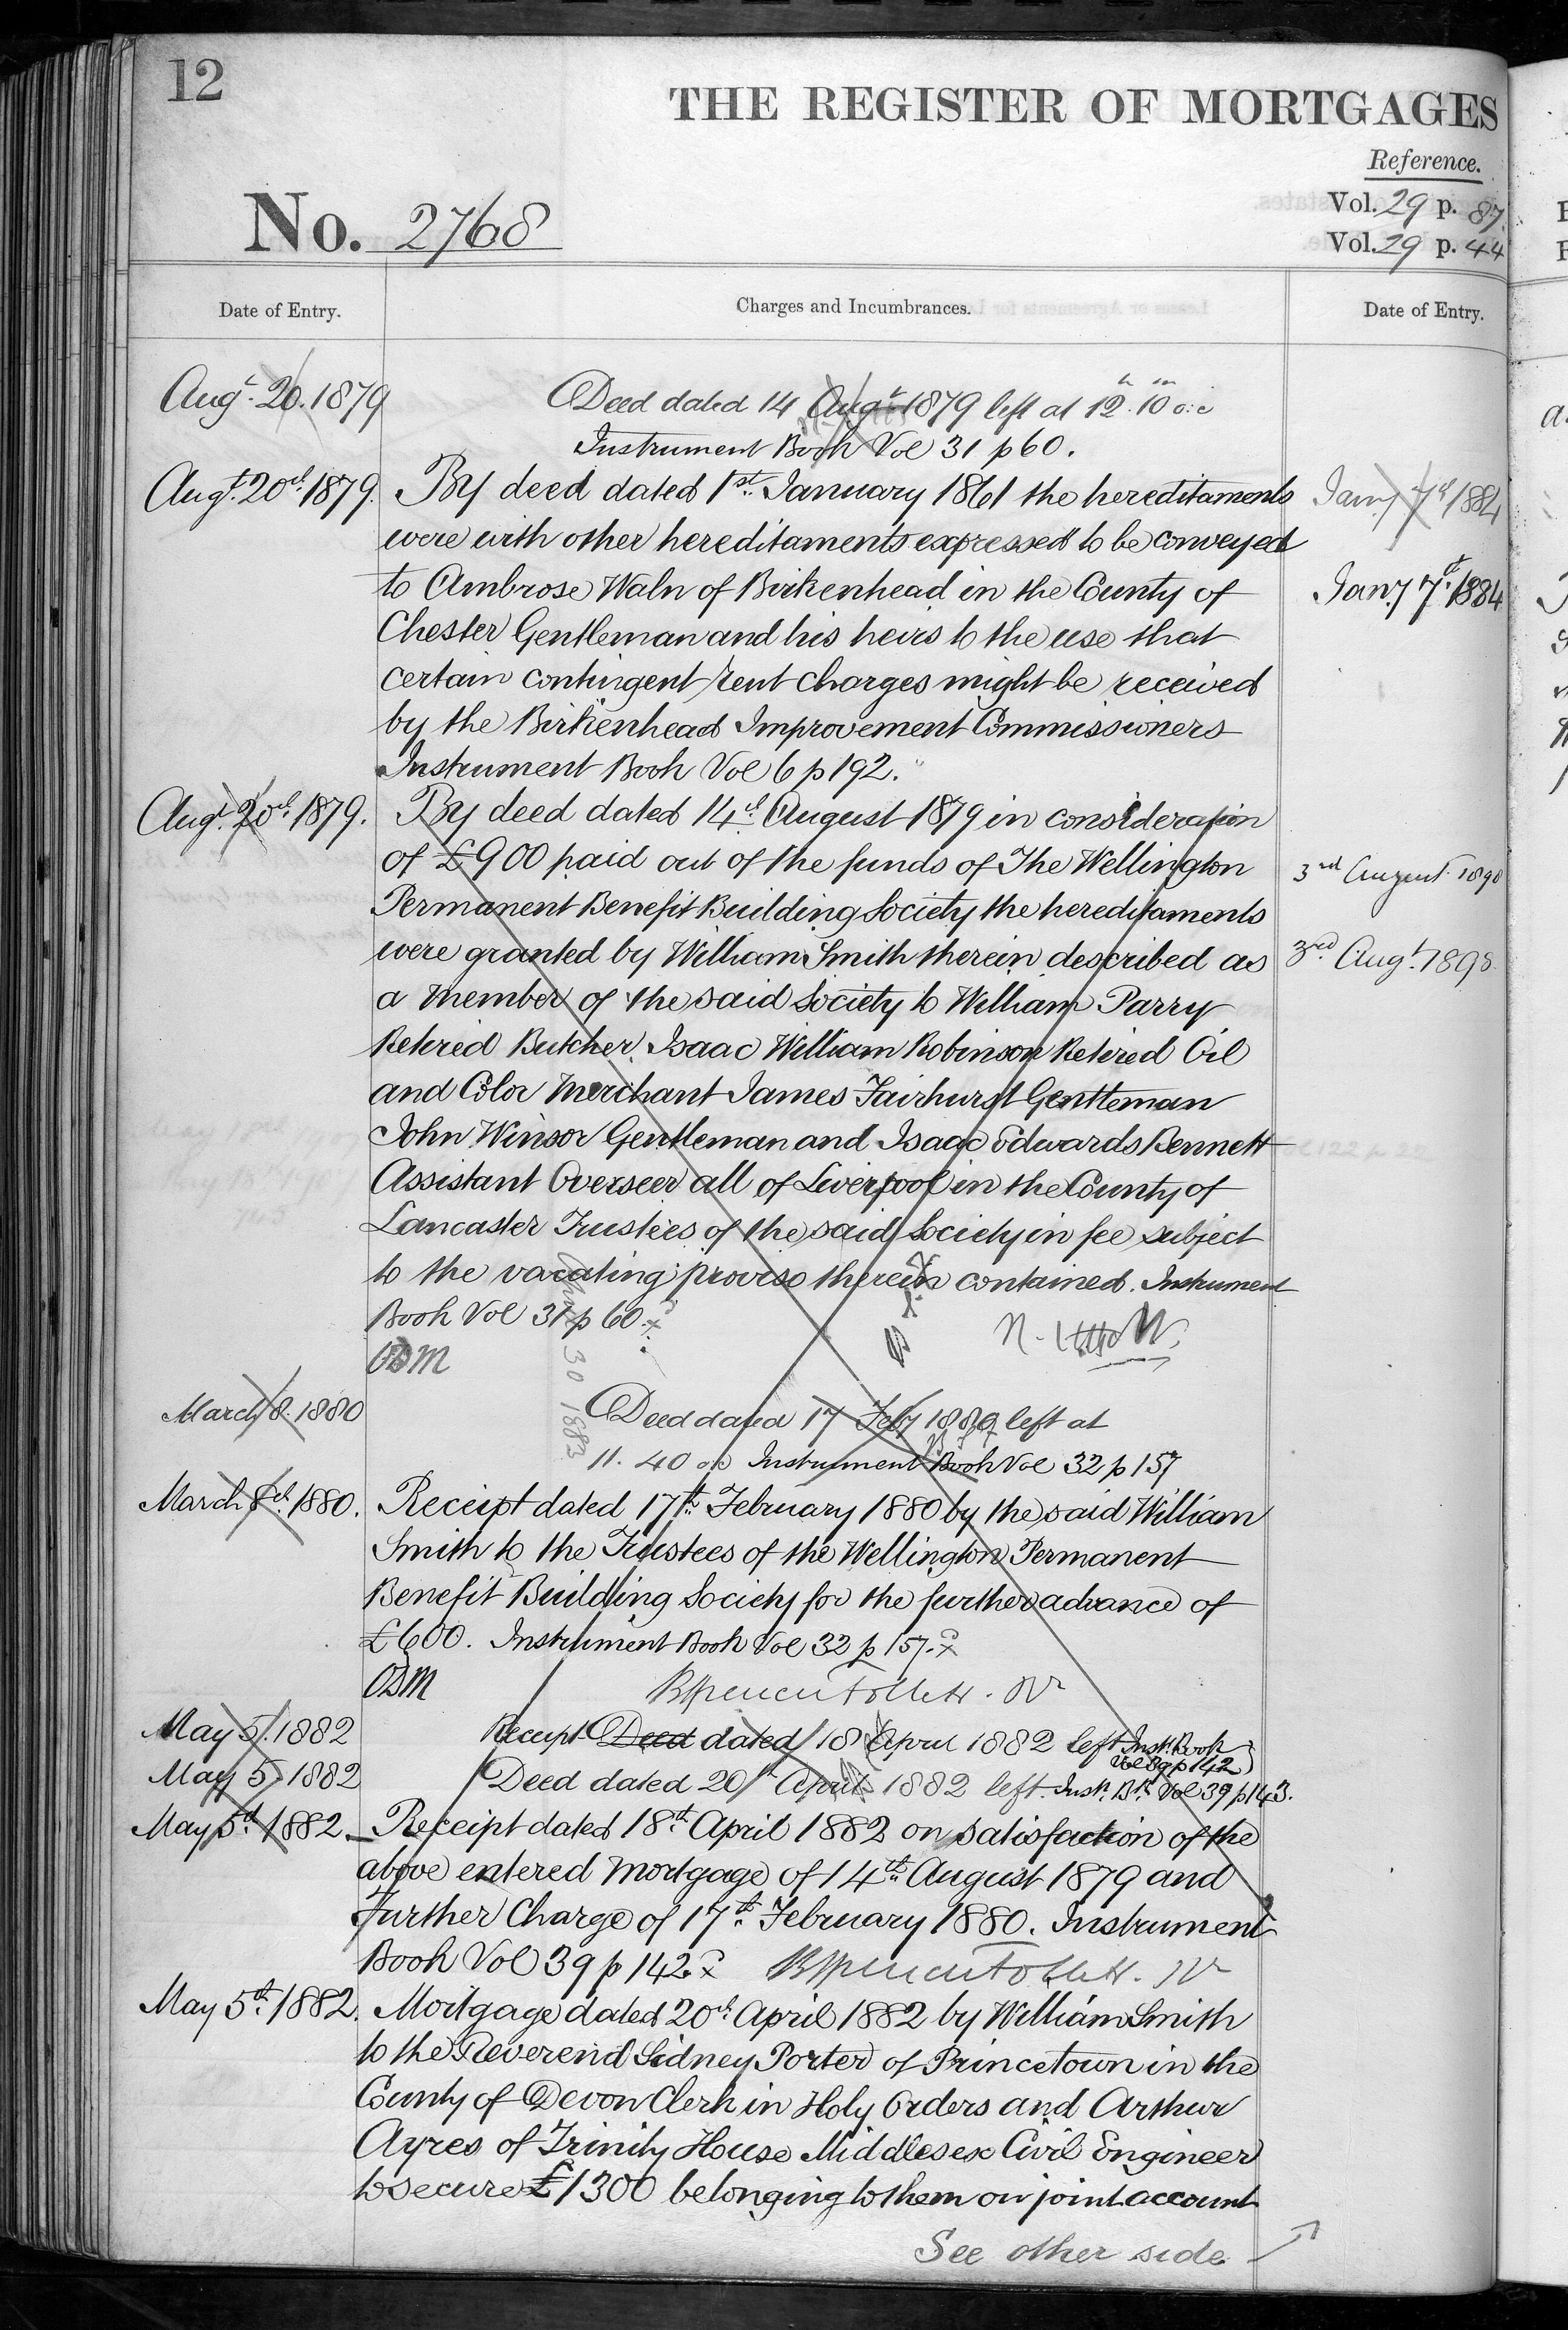 12
THE REGISTER OF MORTGAGES
Reference.
No. 2768
Vol. 29 p. 87
Vol. 29 p. 44
Date of Entry.
Charges and Incumbrances.
Date of Entry.
Augt. 20. 1879
Deed dated 14 Augt 1879 left at 12h. 10m o:c
Instrument Book Vol 31 p 60.
Augt. 20th. 1879.
By deed dated 1st. January 1861 the hereditaments
were with other hereditaments expressed to be conveyed
to Ambrose Waln of Birkenhead in the County of
Chester Gentleman and his heirs to the use that
certain contingent rent charges might be received
by the Birkenhead Improvement Commissioners
Instrument Book Vol 6 p 192.
Augt. 20th. 1879.
By deed dated 14th. August 1879 in consideration
of £900 paid out of the funds of The Wellington
Permanent Benefit Building Society the hereditaments
were granted by William Smith therein described as
a Member of the said Society to William Parry
Retired Butcher Isaac William Robinson Retired Oil
and Color Merchant James Fairhurst Gentleman
John Winsor Gentleman and Isaac Edwards Bennett
Assistant Overseer all of Liverpool in the County of
Lancaster Trustees of the said Society in fee subject
to the vacating proviso therein contained. Instrument
Book Vol 31 p 60.
ODM
30 1883
March 8. 1880
Deed dated 17 Feby 1880 left at
11. 40 oc Instrument Book Vol 32 p 157
March 8th. 1880.
Receipt dated 17th. February 1880 by the said William
Smith to the Trustees of the Wellington Permanent
Benefit Building Society for the further advance of
£600. Instrument Book Vol 32 p 157.
ODM
May 5. 1882
Receipt Deed dated 18 April 1882 left Inst. Book
Vol 39 p 142
May 5. 1882
Deed dated 20th April 1882 left. Inst. Bk. Vol 39 p 143.
May 5th 1882.
Receipt dated 18th. April 1882 on satisfaction of the
above entered Mortgage of 14th. August 1879 and
Further Charge of 17th. February 1880. Instrument
Book Vol 39 p 142.
May 5th. 1882.
Mortgage dated 20th. April 1882 by William Smith
to the Reverend Sidney Porter of Princetown in the
County of Devon Clerk in Holy Orders and Arthur
Ayres of Trinity House Middlesex Civil Engineer
to secure £1300 belonging to them on joint account
See other side
Jany 7th 1884
Jany 7th. 1884
3rd August 1898
3rd. Augt. 1898